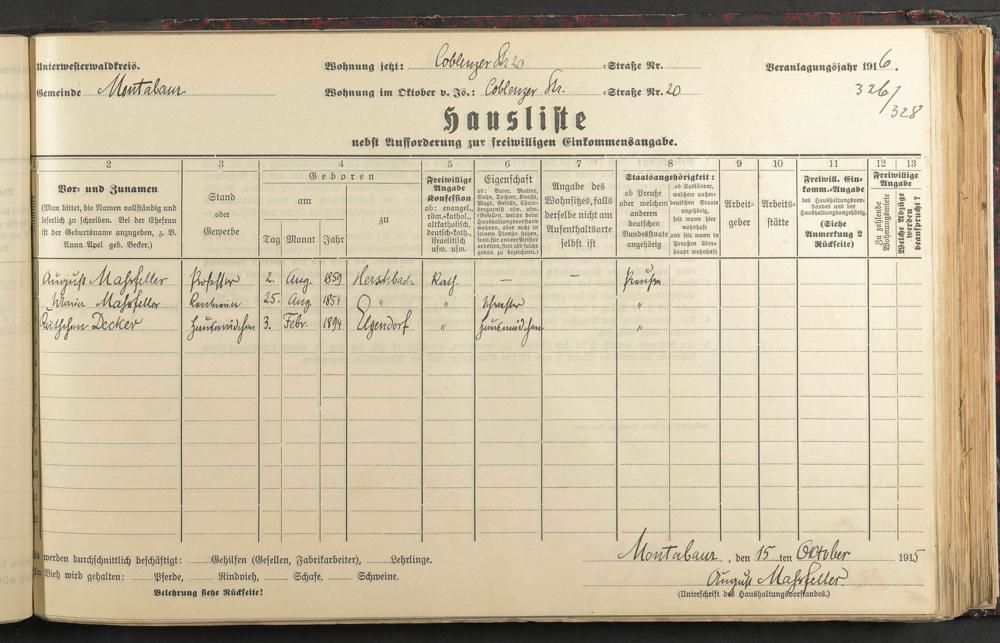 Unterwesterwaldkreis.
Wohnung jetzt: Coblenzer Str 20 =Straße Nr.
Veranlagungsjahr 1916.
Gemeinde Montabaur
Wohnung im Oktober v. Js.: Coblenzer Str. =Straße Nr. 20
326/328
Hausliste
nebst Aufforderung zur freiwilligen Einkommensangabe.
2 3 4 5 6 7 8 9 10 11 12 13
Vor- und Zunamen
(Man bittet, die Namen vollständig und
leserlich zu schreiben. Bei der Ehefrau
ist der Geburtsname anzugeben, z. B.
Anna Apel geb. Becker.)
Stand
oder
Gewerbe
Geboren
am
zu
Tag Monat Jahr
Freiwillige
Angabe
Konfession
ob: evangel.,
röm.-kathol.,
altkatholisch,
deutsch-kath.,
israelitisch
usw. usw.
Eigenschaft
ob: Vater, Mutter,
Sohn, Tochter, Knecht,
Angabe des
Wohnsitzes, falls
derselbe nicht am
Aufenthaltsorte
selbst ist
Staatsangehörigkeit:
ob Preuße
oder welchem
anderen
deutschen
Bundesstaate
angehörig
ob Ausländer,
welchem außer-
deutschen Staate
angehörig,
seit wann hier
wohnhaft
und seit wann in
Preußen über-
haupt wohnhaft
Arbeit-
geber
Arbeits-
stätte
Freiwill. Ein-
komm.-Angabe
des Haushaltungsvor-
standes und der
Haushaltungsangehörig.
(Siehe
Anmerkung 2
Rückseite)
Freiwillige
Angabe
Zu zahlende
Wohnungsmiete
Welche Abzüge
werden
beansprucht?
August Mahrfeller Professor 2. Aug. 1859 Herschbach Kath. — — Preuße
Maria Mahrfeller Rentnerin 25. Aug. 1854 " " Schwester "
Käthchen Decker Hausmädchen 3. Febr. 1894 Elgendorf " Hausmädchen "
werden durchschnittlich beschäftigt: Gehilfen (Gesellen, Fabrikarbeiter), Lehrlinge.
Montabaur, den 15 ten Oktober 1915
Vieh wird gehalten: Pferde, Rindvieh, Schafe, Schweine.
August Mahrfeller.
Belehrung siehe Rückseite!
(Unterschrift des Haushaltungsvorstandes.)